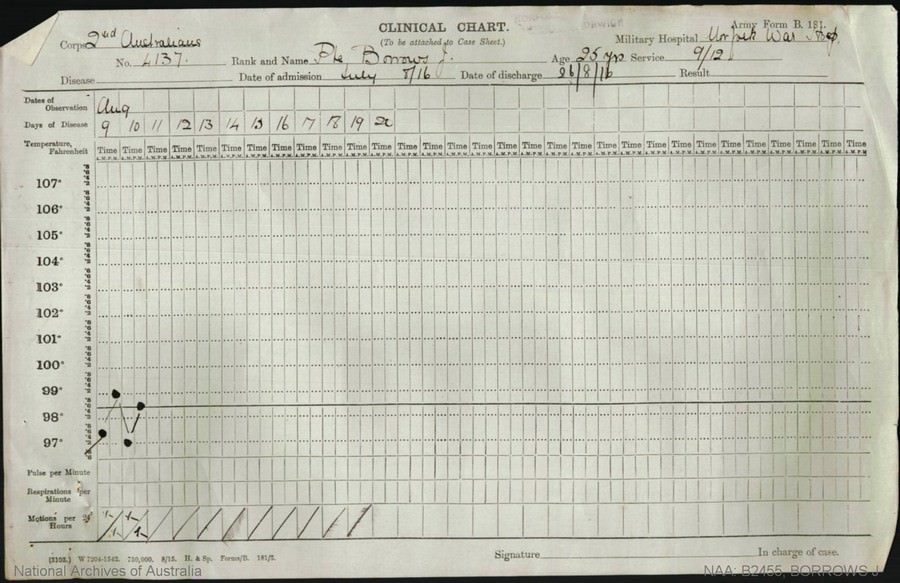 CLINICAL CHART.
Army Form B. 181.
(To be attached to Case Sheet.)
Corps 2nd Australians
Military Hospital War
No. 4137. Rank and Name Pte Borrows J. Age 25 yrs Service 9/12
Disease Date of admission July 8/16 Date of discharge 26/8/16 Result
Dates of Observation Aug
Days of Disease 9 10 11 12 13 14 15 16 17 18 19 20
Temperature, Fahrenheit Time Time Time Time Time Time Time Time Time Time Time Time Time Time Time Time Time Time Time Time Time Time Time Time Time Time Time Time Time Time Time
107°
106°
105°
104°
103°
102°
101°
100°
99°
98°
97°
Pulse per Minute
Respirations per Minute
Motions per 24 Hours
(5102.) W 7204-1542. 750,000. 8/15. H. & Sp. Forms/B. 181/2.
Signature In charge of case.
National Archives of Australia
NAA: B2455, BORROWS J